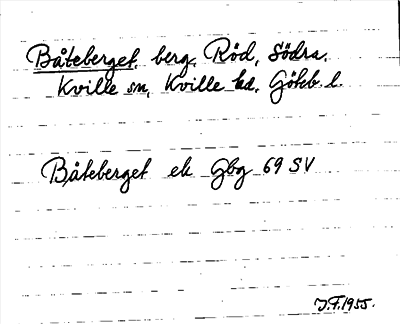 Båteberget, berg, Röd, Södra,
Kville sn, Kville hd, Göteb. l.
Båteberget ek Gbg 69 SV
J.F. 1955.